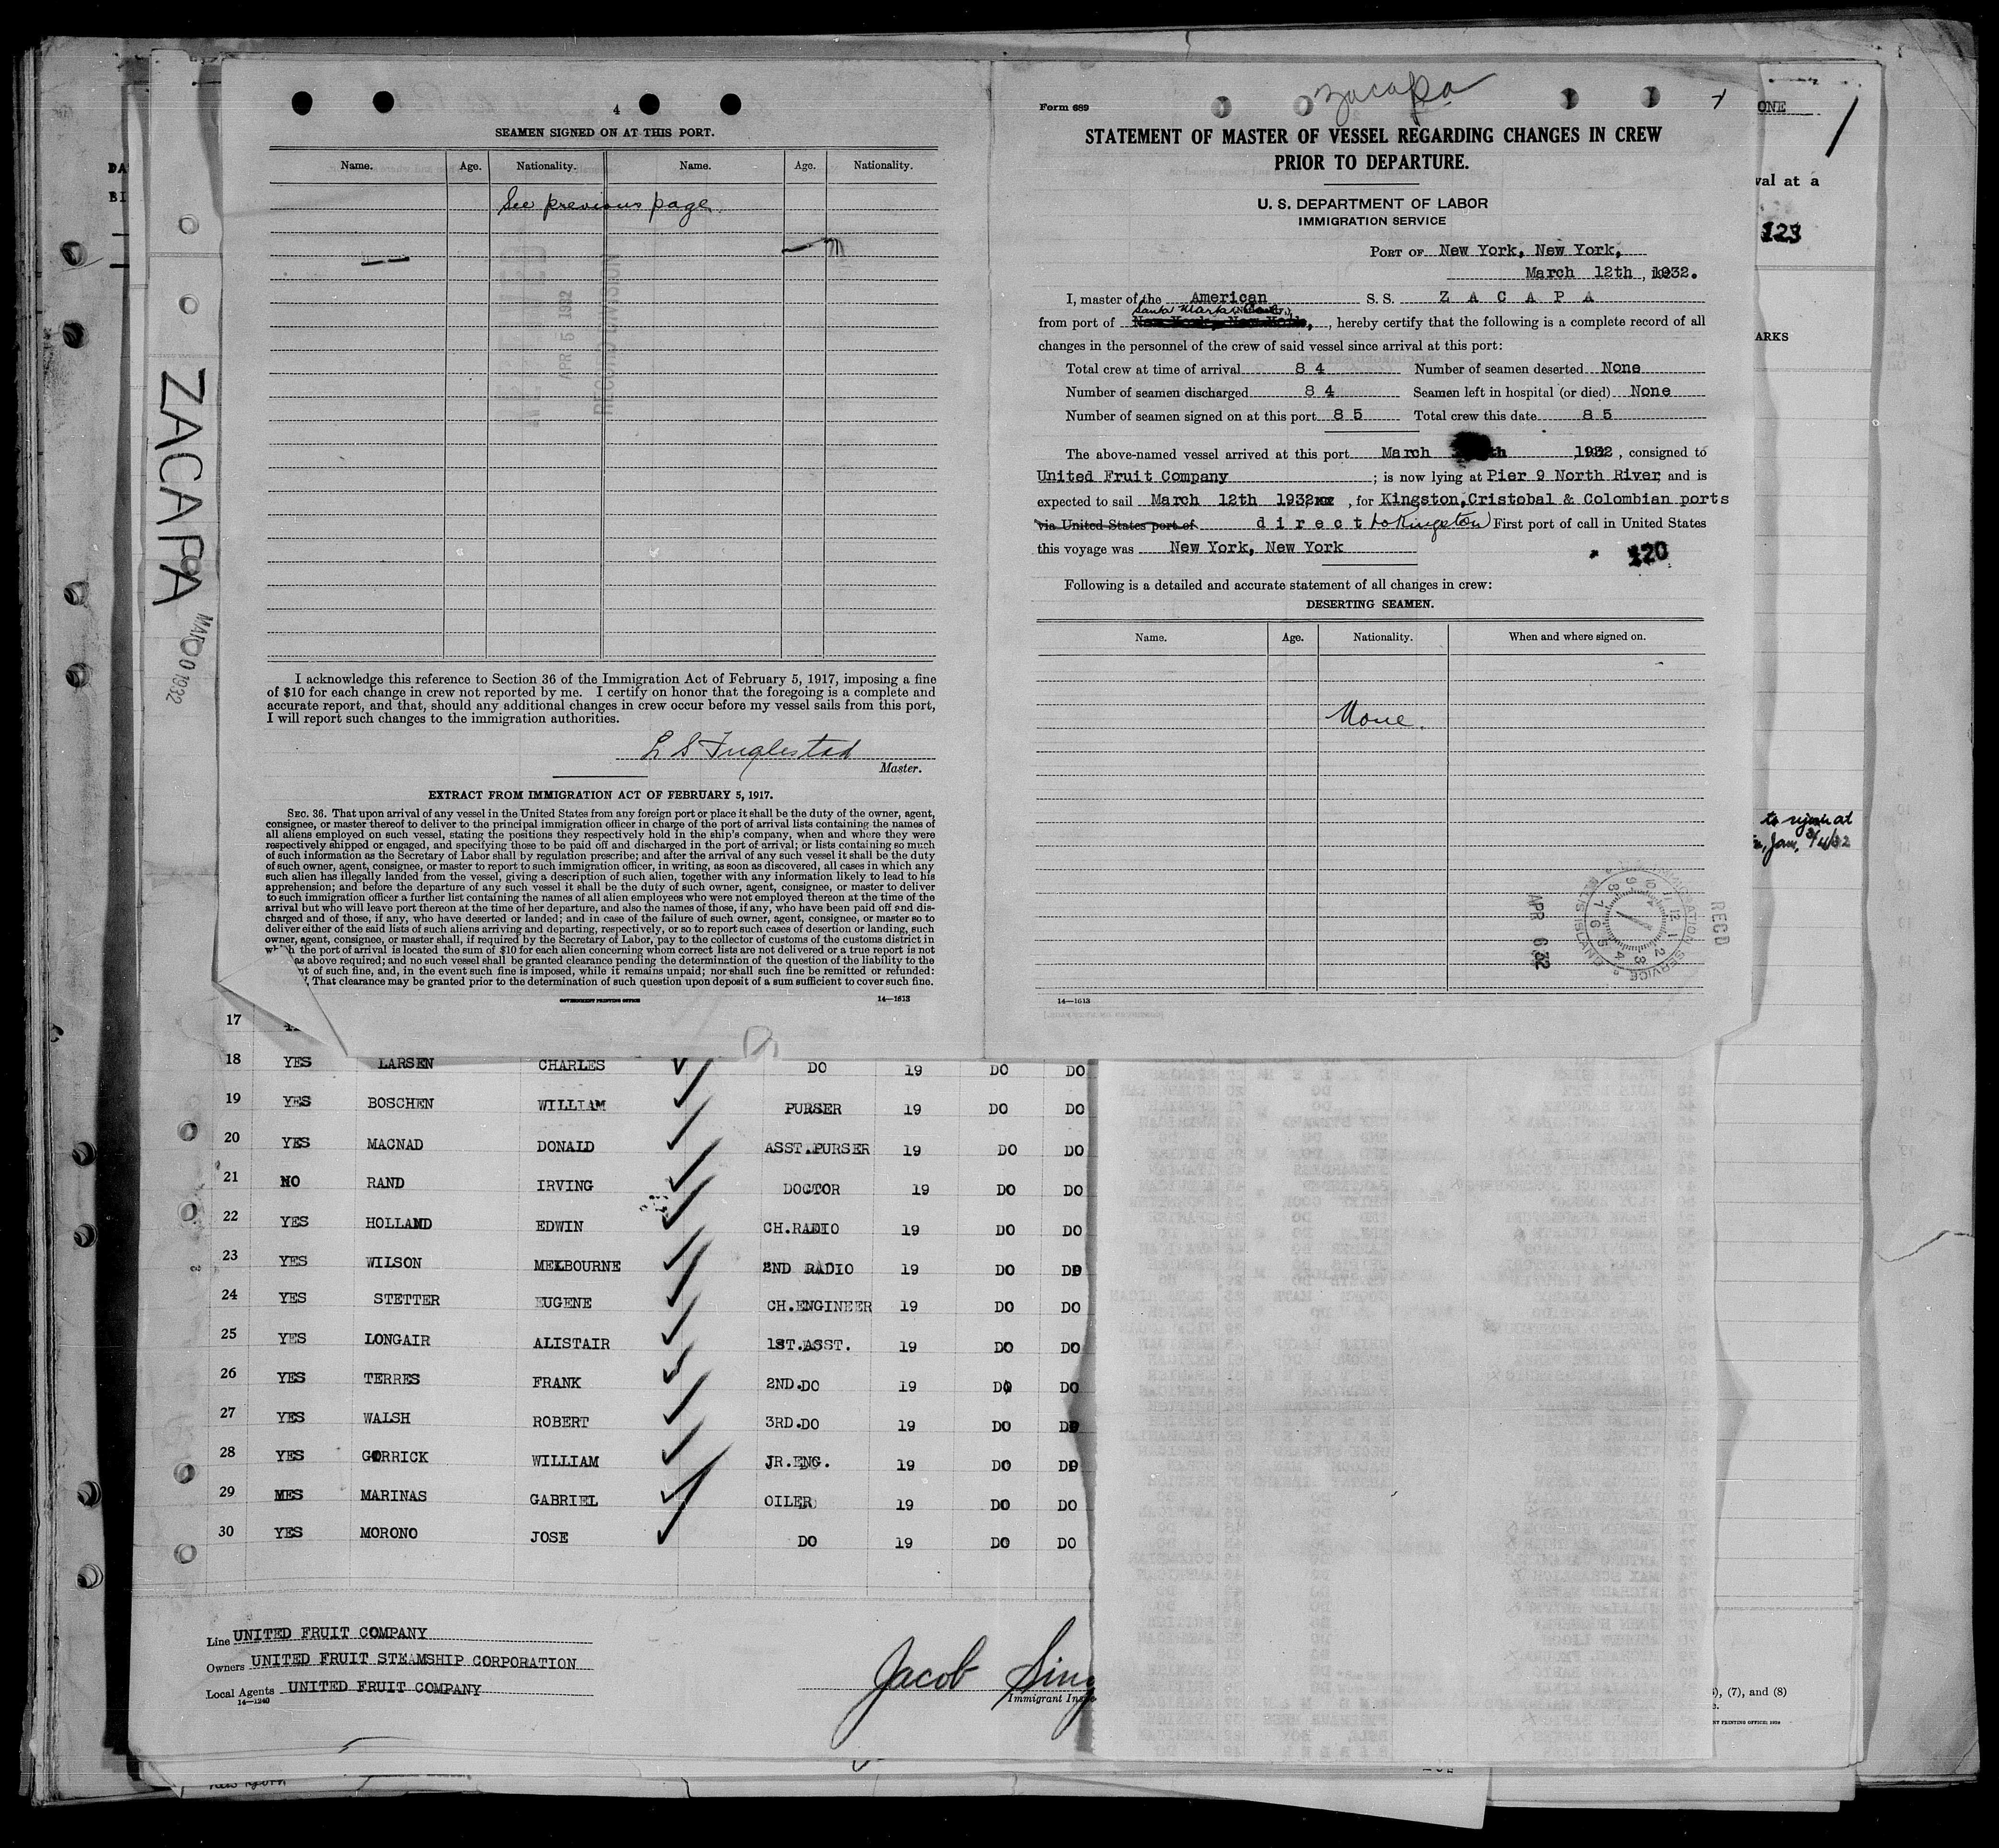 4
SEAMEN SIGNED ON AT THIS PORT.
Name. Age. Nationality. Name. Age. Nationality.
See previous page
APR 5 1932
RECORD DIVISION
I acknowledge this reference to Section 36 of the Immigration Act of February 5, 1917, imposing a fine
of $10 for each change in crew not reported by me. I certify on honor that the foregoing is a complete and
accurate report, and that, should any additional changes in crew occur before my vessel sails from this port,
I will report such changes to the immigration authorities.
Master.
EXTRACT FROM IMMIGRATION ACT OF FEBRUARY 5, 1917.
SEC. 36. That upon arrival of any vessel in the United States from any foreign port or place it shall be the duty of the owner, agent,
consignee, or master thereof to deliver to the principal immigration officer in charge of the port of arrival lists containing the names of
all aliens employed on such vessel, stating the positions they respectively hold in the ship's company, when and where they were
respectively shipped or engaged, and specifying those to be paid off and discharged in the port of arrival; or lists containing so much
of such information as the Secretary of Labor shall by regulation prescribe; and after the arrival of any such vessel it shall be the duty
of such owner, agent, consignee, or master to report to such immigration officer, in writing, as soon as discovered, all cases in which any
such alien has illegally landed from the vessel, giving a description of such alien, together with any information likely to lead to his
apprehension; and before the departure of any such vessel it shall be the duty of such owner, agent, consignee, or master to deliver
to such immigration officer a further list containing the names of all alien employees who were not employed thereon at the time of the
arrival but who will leave port thereon at the time of her departure, and also the names of those, if any, who have been paid off and dis-
charged and of those, if any, who have deserted or landed; and in case of the failure of such owner, agent, consignee, or master so to
deliver either of the said lists of such aliens arriving and departing, respectively, or so to report such cases of desertion or landing, such
owner, agent, consignee, or master shall, if required by the Secretary of Labor, pay to the collector of customs of the customs district in
the port of arrival is located the sum of $10 for each alien concerning whom correct lists are not delivered or a true report is not
as above required; and no such vessel shall be granted clearance pending the determination of the question of the liability to the
nt of such fine, and, in the event such fine is imposed, while it remains unpaid; nor shall such fine be remitted or refunded:
That clearance may be granted prior to the determination of such question upon deposit of a sum sufficient to cover such fine.
GOVERNMENT PRINTING OFFICE 14—1613
Zacapa
Form 689
STATEMENT OF MASTER OF VESSEL REGARDING CHANGES IN CREW
PRIOR TO DEPARTURE.
U. S. DEPARTMENT OF LABOR
IMMIGRATION SERVICE
PORT OF New York, New York,
March 12th, 1932.
I, master of the American S. S. Z A C A P A
Santa Marta
from port of New York, New York, hereby certify that the following is a complete record of all
changes in the personnel of the crew of said vessel since arrival at this port:
Total crew at time of arrival 8 4 Number of seamen deserted None
Number of seamen discharged 8 4 Seamen left in hospital (or died) None
Number of seamen signed on at this port 8 5 Total crew this date 8 5
The above-named vessel arrived at this port March th 1932, consigned to
United Fruit Company ; is now lying at Pier 9 North River and is
expected to sail March 12th 1932, for Kingston, Cristobal & Colombian ports
via United States port of d i r e c t to Kingston First port of call in United States
this voyage was New York, New York
120
Following is a detailed and accurate statement of all changes in crew:
DESERTING SEAMEN.
Name. Age. Nationality. When and where signed on.
None.
APR 6 32
IMMIGRATION SERVICE
ELLIS ISLAND
RECD
14—1613
ZACAPA
1932
ONE
val at a
123
ARKS
17
18 YES LARSEN CHARLES DO 19 DO DO
19 YES BOSCHEN WILLIAM PURSER 19 DO DO
20 YES MACNAD DONALD ASST.PURSER 19 DO DO
21 NO RAND IRVING DOCTOR 19 DO DO
22 YES HOLLAND EDWIN CH.RADIO 19 DO DO
23 YES WILSON MELBOURNE 2ND RADIO 19 DO DO
24 YES STETTER EUGENE CH.ENGINEER 19 DO DO
25 YES LONGAIR ALISTAIR 1ST.ASST. 19 DO DO
26 YES TERRES FRANK 2ND.DO 19 DO DO
27 YES WALSH ROBERT 3RD.DO 19 DO DO
28 YES GORRICK WILLIAM JR.ENG. 19 DO DO
29 MES MARINAS GABRIEL OILER 19 DO DO
30 YES MORONO JOSE DO 19 DO DO
Line UNITED FRUIT COMPANY
Owners UNITED FRUIT STEAMSHIP CORPORATION
Local Agents UNITED FRUIT COMPANY
14—1240
Jacob Sing
Immigrant Ins
, (7), and (8)